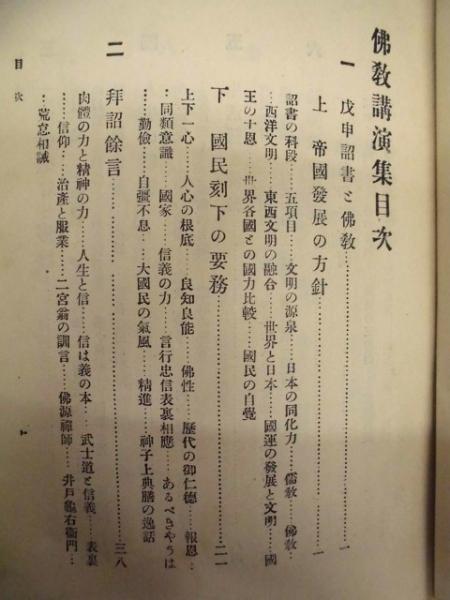 佛教講演集目次
一 戊申詔書と佛教……………………一
上 帝國發展の方針……………………一
詔書の科段……五項目……文明の源泉……日本の同化力……儒教……佛教…
…西洋文明……東西文明の融合……世界と日本……國運の發展と文明……國
王の十恩……世界各國との國力比較……國民の自覺
下 國民刻下の要務……………………二一
上下一心……人心の根底……良知良能……佛性……歷代の御仁德……報恩…
…同類意識……國家……信義の力……言行忠信表裏相應……あるべきやうは
……勤儉……自彊不息……大國民の氣風……精進……神子上典膳の逸話
二 拜詔餘言……………………三八
肉體の力と精神の力……人生と信……信は義の本……武士道と信義……表裏
……信仰……治產と服業……二宮翁の訓言……佛源禪師……井戶龜右衞門…
…荒怠相誡
目次